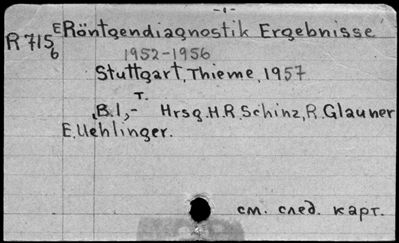 -1-
R 715/6 E Röntgendiagnostik Ergebnisse
1952-1956
Stuttgart, Thieme, 1957
т.
B.1,- Hrsg. H.R. Schinz, R. Glauner
E. Uehlinger.
см. след. карт.